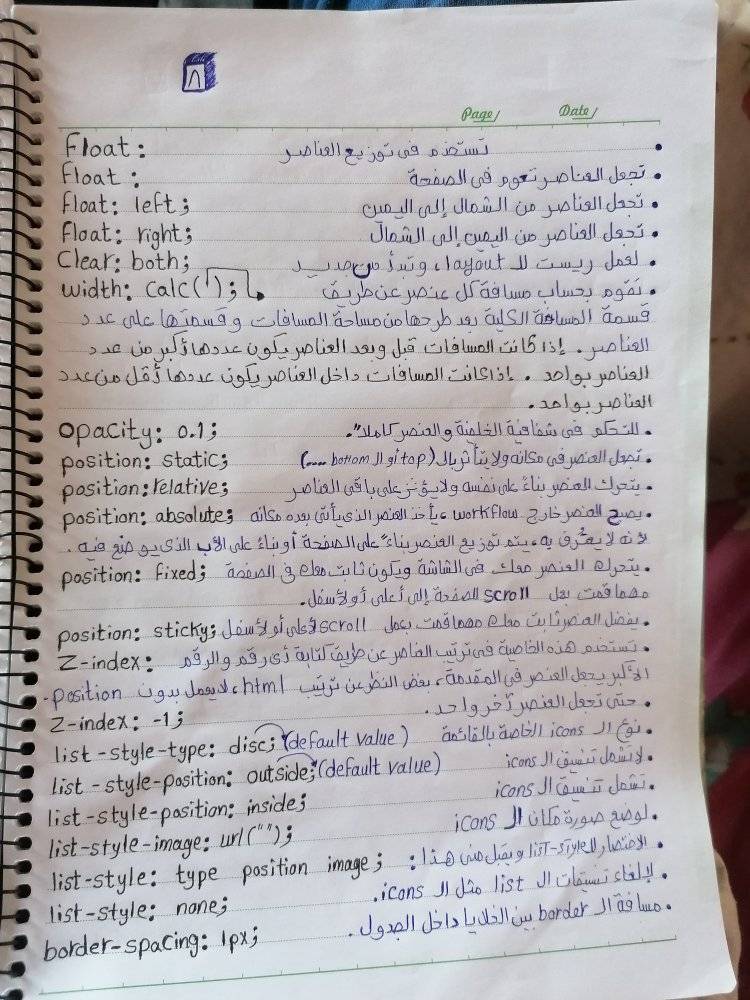 ٨
Page/ Date/
Float: • تستخدم فى توزيع العناصر
Float: • تجعل العناصر تعوم فى الصفحة
Float: left; • تجعل العناصر من الشمال إلى اليمين
Float: right; • تجعل العناصر من اليمين إلى الشمال
Clear: both; • لعمل ريست للـ layout، وتبدأ من جديد
width: calc( ); • تقوم بحساب مسافة كل عنصر عن طريق
قسمة المسافة الكلية بعد طرحها من مساحة المسافات وقسمتها على عدد
العناصر. إذا كانت المسافات قبل وبعد العناصر يكون عددها أكبر من عدد
العناصر بواحد. إذا كانت المسافات داخل العناصر يكون عددها أقل من عدد
العناصر بواحد.
opacity: 0.1; • للتحكم فى شفافية الخلفية والعنصر كاملاً.
position: static; • تجعل العنصر فى مكانه ولا يتأثر بالـ (top أو الـ bottom ....)
position: relative; • يتحرك العنصر بناءً على نفسه ولا يؤثر على باقى العناصر
position: absolute; • يصبح العنصر خارج workflow، يأخذ العنصر الذى يأتى بعده مكانه
لأنه لا يعترف به، يتم توزيع العنصر بناءً على الصفحة أو بناءً على الأب الذى يوضع فيه.
position: fixed; • يتحرك العنصر معك فى الشاشة ويكون ثابت معك فى الصفحة
مهما قمت بعمل scroll للصفحة إلى أعلى أو لأسفل.
position: sticky; • يفضل العنصر ثابت معك مهما قمت بعمل scroll لأعلى أو لأسفل
Z-index: • تستخدم هذه الخاصية فى ترتيب العناصر عن طريق كتابة أى رقم والرقم
الأكبر يجعل العنصر فى المقدمة، بغض النظر عن ترتيب html، لا يعمل بدون position.
Z-index: -1; • حتى تجعل العنصر آخر واحد.
list-style-type: disc; (default value) • نوع الـ icons الخاصة بالقائمة
list-style-position: outside; (default value) • لا تشمل تنسيق الـ icons
list-style-position: inside; • تشمل تنسيق الـ icons
list-style-image: url(""); • لوضع صورة مكان الـ icons
list-style: type position image; • الاختصار لـ list-style ويقبل هذا:
list-style: none; • لإلغاء تنسيقات الـ list مثل الـ icons.
border-spacing: 1px; • مسافة الـ border بين الخلايا داخل الجدول.